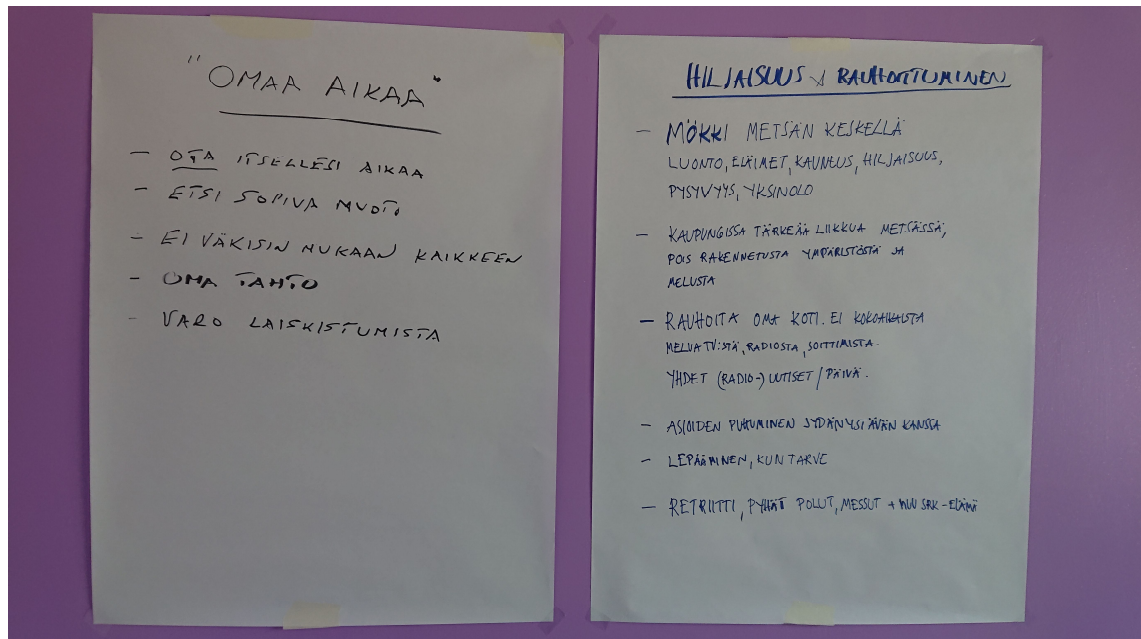 "OMAA AIKAA"
- OTA ITSELLESI AIKAA
- ETSI SOPIVA MUOTO
- EI VÄKISIN MUKAAN KAIKKEEN
- OMA TAHTO
- VARO LAISKISTUMISTA
HILJAISUUS & RAUHOITTUMINEN
- MÖKKI METSÄN KESKELLÄ
LUONTO, ELÄIMET, KAUNEUS, HILJAISUUS,
PYSYVYYS, YKSINOLO
- KAUPUNGISSA TÄRKEÄÄ LIIKKUA METSÄSSÄ,
POIS RAKENNETUSTA YMPÄRISTÖSTÄ JA
MELUSTA
- RAUHOITA OMA KOTI. EI KOKOAIKAISTA
MELUA TV:STÄ, RADIOSTA, SOITTIMISTA.
YHDET (RADIO-) UUTISET / PÄIVÄ.
- ASIOIDEN PUHUMINEN SYDÄNYSTÄVÄN KANSSA
- LEPÄÄMINEN, KUN TARVE
- RETRIITTI, PYHÄT POLUT, MESSUT + MUU SRK-ELÄMÄ